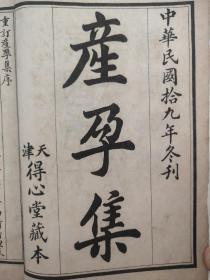 中華民國拾九年冬刊
產孕集
天津得心堂藏本
重訂產孕集序